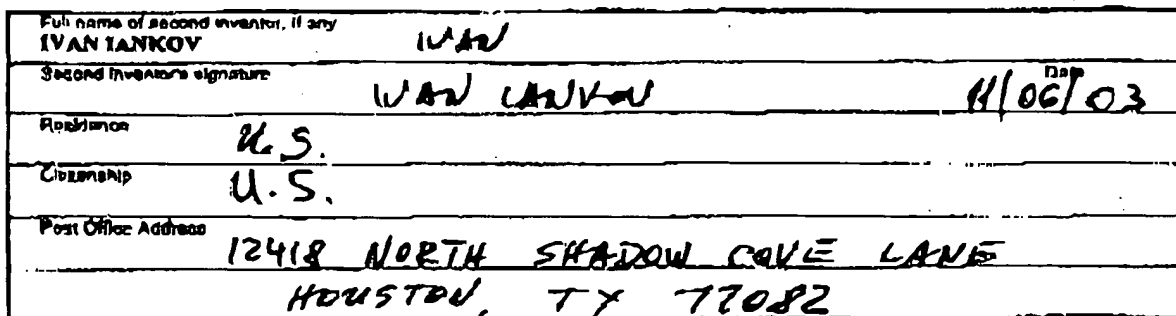 Full name of second inventor, if any
IVAN IANKOV IVAN
Second Inventor's signature Date
IVAN IANKOV 11/06/03
Residence U.S.
Citizenship U.S.
Post Office Address
12418 NORTH SHADOW COVE LANE
HOUSTON, TX 77082